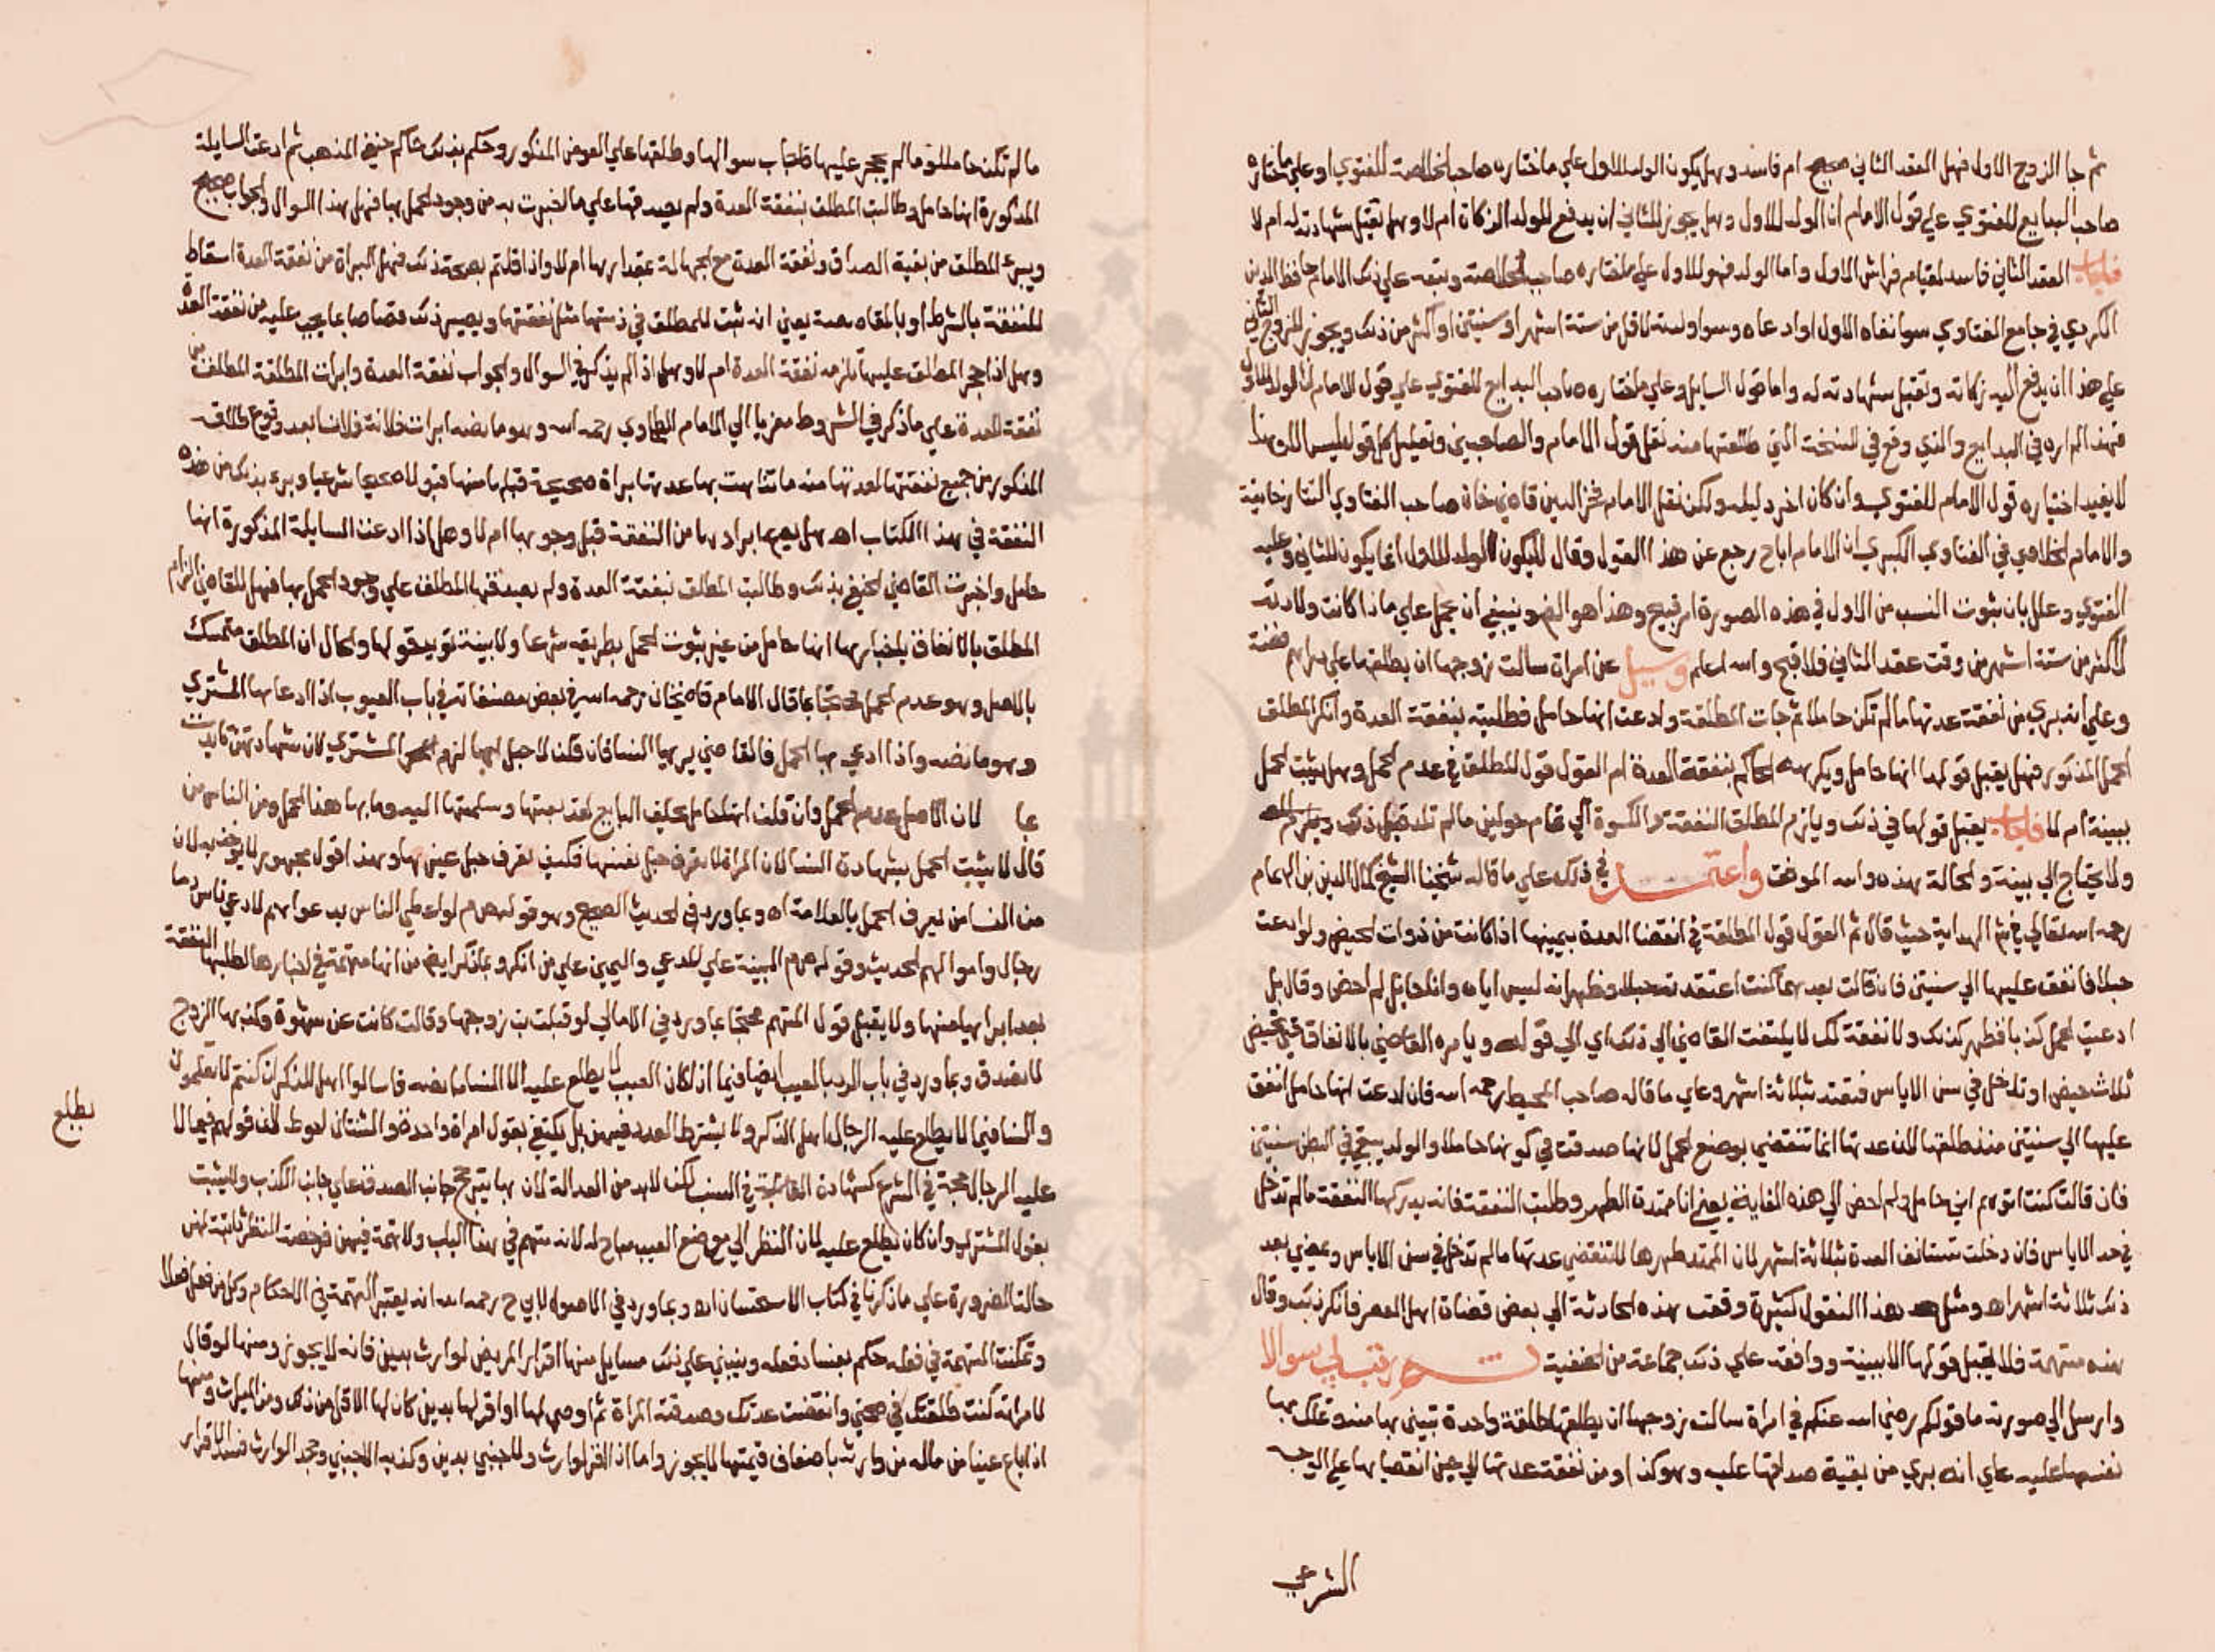 ثم جا الزوج الاول فهل العقد الثاني صحيح ام فاسد وهل يكون الولد للاول علي ما اختاره صاحب الخلاصة للفتوي او علي ما اختاره
صاحب البدايع للفتوي علي قول الامام ان الولد للاول وهل يجوز للثاني ان يدفع للولد الزكاة ام لا وهل تقبل شهادته له ام لا
فاجاب العقد الثاني فاسد لقيام فراش الاول واما الولد فهو للاول علي ما اختاره صاحب الخلاصة وتبعه علي ذلك الامام حافظ الدين
الكردي في جامع الفتاوي سوا نفاه الاول او ادعاه وسوا ولدته لاقل من ستة اشهر او سنتين او اكثر من ذلك ويجوز للزوج الثاني
علي هذا ان يدفع اليه زكاته وتقبل شهادته له واما قول السايل وعلي ما اختاره صاحب البدايع للفتوي علي قول الامام ان الولد للاول
فهذا لم اره في البدايع والذي وقع في النسخة التي طالعتها منه نقل قول الامام والصاحبين وتعليل كل قول ليس الا وهذا
لا يفيد اختياره قول الامام للفتوي وان كان اخر دليله ولكن نقل الامام فخر الدين قاضيخان صاحب الفتاوي التتارخانية
والامام الخلاصي في الفتاوي الكبري ان الامام اباح رجع عن هذا القول وقال لا يكون الولد للاول انما يكون للثاني وعليه
الفتوي وعلل بان ثبوت النسب من الاول في هذه الصورة امر قبيح وهذا هو الصحيح وينبغي ان يحمل علي ما اذا كانت ولادته
لاكثر من ستة اشهر من وقت عقد الثاني فلا قبح والله اعلم وسيل عن امراة سالت زوجها ان يطلقها علي دراهم فضة
وعلي انه بري من نفقة عدتها ما لم تكن حاملا ثم جات المطلقة وادعت انها حامل فطلبته بنفقة العدة وانكر المطلق
الحمل المذكور فهل يقبل قولها انها حامل ويكرهه الحاكم بنفقة العدة ام القول قول المطلق في عدم الحمل وهل يثبت الحمل
ببينة ام لا فاجاب يقبل قولها في ذلك ويلزم المطلق النفقة والكسوة الي تمام حولين ما لم تلد قبل ذلك
ولا يحتاج الي بينة والحالة هذه والله الموفق واعتمد في ذلك علي ما قاله شيخنا الشيخ كمال الدين بن الهمام
رحمه الله تعالي في شرح الهداية حيث قال ثم القول قول المطلقة في انقضا العدة بيمينها اذا كانت من ذوات الحيض ولو ادعت
حبلا فانفق عليها الي سنتين فان قالت بعدهما كنت اعتقد حبلا وظهر انه ليس اياه وانا لم احض وقال بل
ادعيت الحمل كذبا فظهر كذبك ولا نفقة لك لا يلتفت القاضي الي ذلك اي الي قوله ويامره القاضي بالانفاق حتي تحيض
ثلاث حيض او تدخل في سن الاياس فتعتد بثلاثة اشهر وعلي ما قاله صاحب المحيط رحمه الله فان ادعت انها حامل انفق
عليها الي سنتين منذ طلقها لان عدتها انما تنقضي بوضع الحمل لانها صدقت في كونها حاملا والولد يبقي في البطن سنتين
فان قالت كنت اتوهم اني حامل ولم احض الي هذه الغاية يعني انا ممتدة الطهر وطلبت النفقة فانه يدركها النفقة ما لم تدخل
في حد الاياس فان دخلت تستانف العدة بثلاثة اشهر لان الممتد طهرها لا تنقضي عدتها ما لم تدخل في سن الاياس وتمضي بعد
ذلك ثلاثة اشهر اه ومثل هذا النقول كثيرة وقعت هذه الحادثة الي بعض قضاة اهل العصر فانكر ذلك وقال
هذه متهمة فلا يقبل قولها الا ببينة ووافقه علي ذلك جماعة من الحنفية ثم رتب لي سوالا
وارسل الي صورته ما قولكم رضي الله عنكم في امراة سالت زوجها ان يطلقها طلقة واحدة تبين بها منه وتملك بها
نفسها عليه علي انه بري من بقية صداقها عليه وهو كذا ومن نفقة عدتها الي حين انقضايها علي الوجه
الشرعي
ما لم تكن حاملا وما لم يحجر عليها فاجاب سوالها وطلقها علي العوض المذكور وحكم بذلك حاكم حنفي المذهب ثم ادعت السايلة
المذكورة انها حامل وطالبت المطلق بنفقة العدة ولم يصدقها علي ما اخبرت به من وجود الحمل بها فهل هذا السوال والجواب صحيح
ويبرئ المطلق من بقية الصداق ونفقة العدة مع الجهالة بمقدارها ام لا واذا قلتم بصحة ذلك فهل البراة من نفقة العدة اسقاط
للنفقة بالشرط او بالمقاصصة يعني انه ثبت للمطلق في ذمتها مثل نفقتها ويصير ذلك قصاصا بما يجب عليه من نفقة العدة
وهل اذا حجر المطلق عليها تلزمه نفقة العدة ام لا وهل اذا لم يذكر في السوال والجواب نفقة العدة وابرات المطلقة المطلق من
نفقة العدة علي ما ذكر في الشروط معزيا الي الامام الطحاوي رحمه الله وهو ما نصه ابرات فلانة فلانا بعد وقوع طلاقه
المذكور من جميع نفقتها لعدتها منه ما تناهت بها عدتها براة صحيحة قبلها منها قبولا صحيحا شرعيا وبرء بذلك من هذه
النفقة في هذا الكتاب اه هل يصح ابرادها من النفقة قبل وجوبها ام لا وهل اذا ادعت السايلة المذكورة انها
حامل واخبرت القاضي الحنفي بذلك وطالبت المطلق بنفقة العدة ولم يصدقها المطلق علي وجود الحمل بها فهل للقاضي الزام
المطلق بالانفاق باخبارها انها حامل من غير ثبوت الحمل بطريقه شرعا ولا بينة تويد قولها والحال ان المطلق متمسك
بالاصل وهو عدم الحمل محتجا بما قال الامام قاضيخان رحمه الله في بعض مصنفاته في باب العيوب اذا ادعاها المشتري
وهو ما نصه واذا ادعي بها الحمل فالقاضي يريها النسا فان قلن لا حبل بها لزم المشتري لان شهادتهن تايدت
بما لان الاصل عدم الحمل وان قلن انها حامل يحلف البايع لقد بعتها وسلمتها اليه وما بها هذا الحمل ومن الناس من
قال لا يثبت الحمل بشهادة النسا لان المراة لا تعرف حبل نفسها فكيف تعرف حبل غيرها وهذا قول مهجور لا يوخذ به لان
من النسا من يعرف الحمل بالعلامة اه وبما ورد في الحديث الصحيح وهو قوله صم لو اعطي الناس بدعواهم لادعي ناس دما
رجال واموالهم الحديث وقوله صم البينة علي المدعي واليمين علي من انكر وبما ذكر ايضا من انها متهمة في اخبارها لطلبها النفقة
بعد ابرايها منها ولا يقبل قول المتهم محتجا بما ورد في الامالي لو قبلت بن زوجها وقالت كانت عن شهوة وكذبها الزوج
لا يصدق وبما ورد في باب الرد بالعيب ايضا وفيما اذا كان العيب لا يطلع عليه الا النسا ما نصه فاسالوا اهل الذكر ان كنتم لا تعلمون
والنسا فيما لا يطلع عليه الرجال اهل الذكر ولا يشترط العدد فيهن بل يكتفي بقول امراة واحدة والثنتان احوط لان قولهم فيما لا
يطلع
عليه الرجال حجة في الشرع كشهادة القابلة في النسب لكن لا بد من العدالة لان بها يترجح جانب الصدق علي جانب الكذب ولا يثبت
بقول المشتري وان كان يطلع عليه لان النظر الي موضع العيب مباح له لانه متهم في هذا الباب ولا تهمة فيهن فرخصة النظر ثابتة لهن
حالة الضرورة علي ما ذكرنا في كتاب الاستحسان اه وبما ورد في الاصول لابي ح رحمه الله انه يعتبر التهمة في الاحكام وكل من فعل فعلا
وتمكنت التهمة في فعله حكم بفساد فعله ويبتني علي ذلك مسايل منها اقرار المريض لوارث بدين فانه لا يجوز ومنها لو قال
لامراته كنت طلقتك في صحتي وانقضت عدتك وصدقته المراة ثم اوصي لها او اقر لها بدين كان لها الاقل من ذلك ومن الميراث ومنها
اذا باع عينا من ماله من وارثه باضعاف قيمتها لا يجوز واما اذا اقر لوارث ولاجنبي بدين وكذبه الاجنبي وجحد الوارث فسد الاقرار